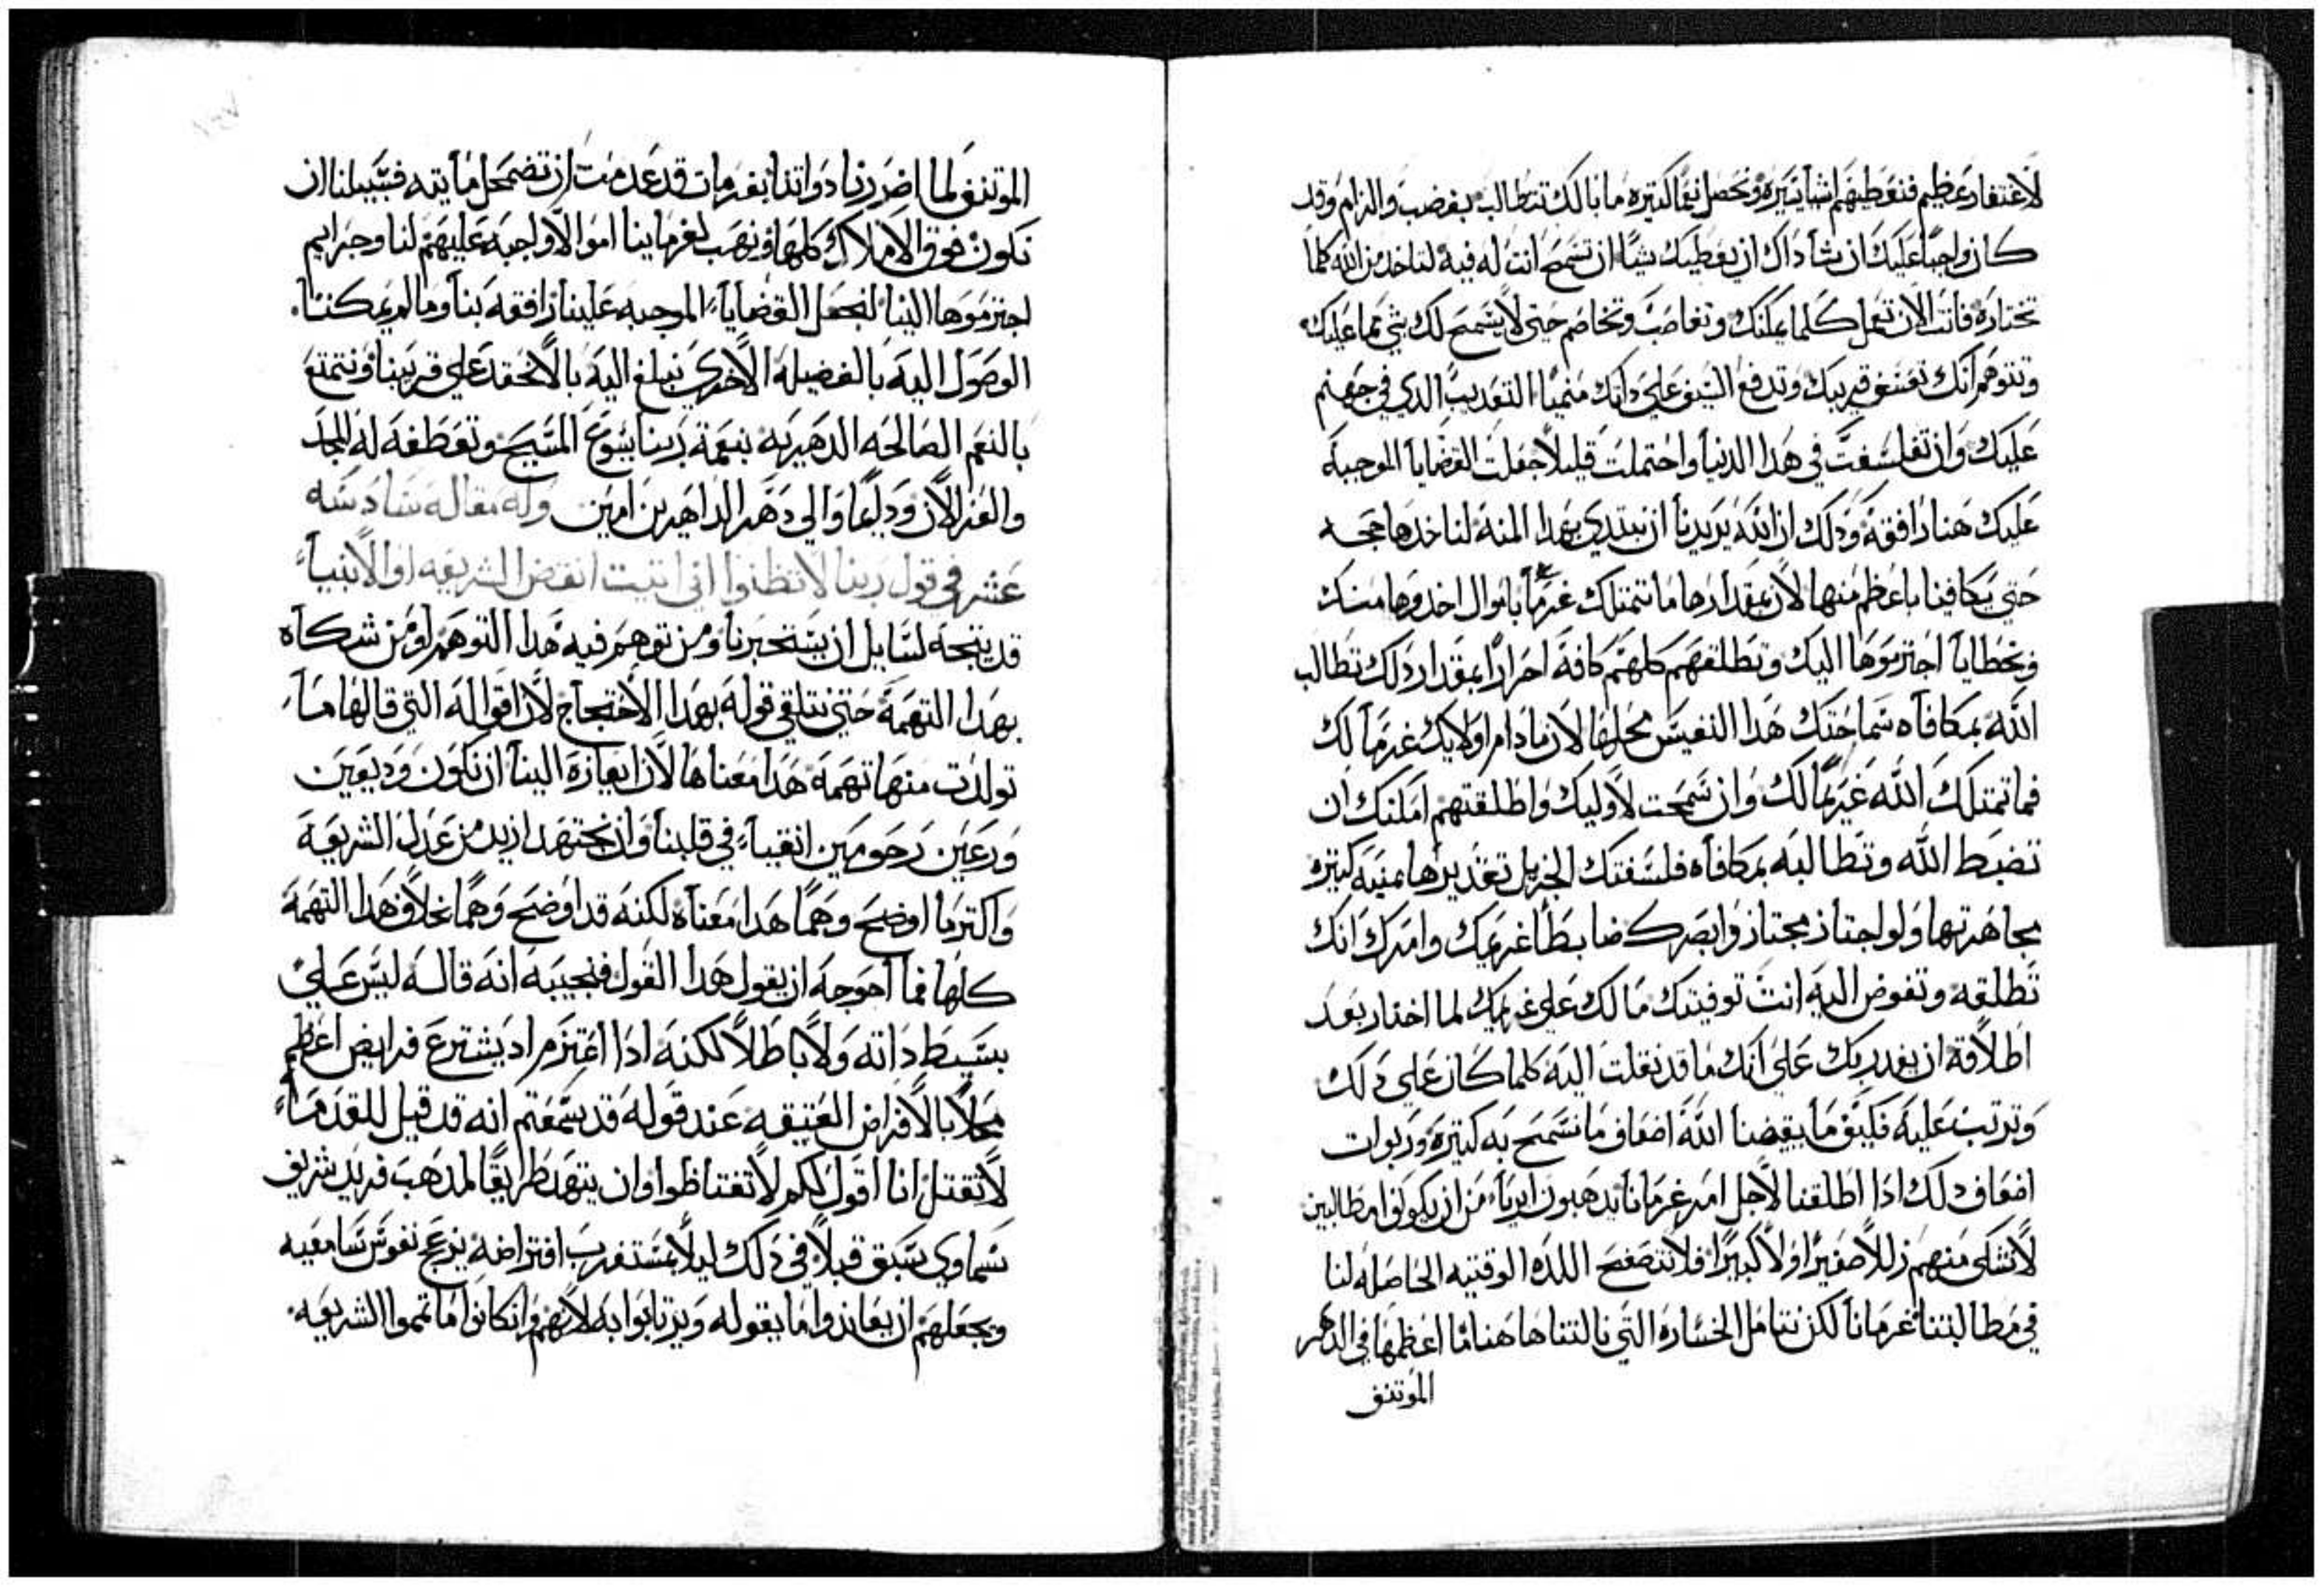 لاغتفار عظيم فنعطيهم اشيا يسيره ونحصل نعما كتيره ما بالك تتطالب بغضب والزام وقد
كان واجبا عليك ان تشا داك ان يعطيك شيا ان تسمح انت له فيه لتاخد من الله كلما
تختاره فانت الان تعمل كلما يمكنك وتغاصب وتخاصم حتي لا يسمح لك بشي مما عليك
وتتوهم انك تعسف قريبك وتدفع السيف علي داتك منميا التعديب الدي في جهنم
عليك وان تفلسفت في هدا الدنيا واحتملت قليلا جعلت القضايا الموجبه
عليك هنا رافقة ودلك ان الله يريدنا ان نبتدي بهدا المنة لناخدها حجه
حتي يكافينا باعظم منها لان بمقدارها ما تتمتلك غرما باموال اخدوها منك
وبخطايا اجترموها اليك وتطلقهم كلهم كافة احرارا بمقدار دلك تطالب
الله بمكافاه سماحتك هدا النفيس محلها لان ما دام اولايك غرما لك
فما تمتلك الله غريما لك وان سمحت لاوليك واطلقتهم امكنك ان
تضبط الله وتطالبه بمكافاه فلسفتك الجزيل تقديرها منيه كتيره
مجاهرتها ولو اجتاز مجتاز وابصرك ضابطا غريمك وامرك انك
تطلقه وتفوض اليه انت توفيتك مالك علي غريمك لما اختار بعد
اطلاقه ان يغدر بك علي انك ما قد نقلت اليه كلما كان علي دلك
وترتب عليه فكيف ما يعيضنا الله اضعاف ما نسمح به كتيره وربوات
اضعاف دلك ادا اطلقنا لاجل امره غرمانا يدهبون ابريا من ان يكونوا مطالبين
لا نشكي منهم زللا صغيرا ولا كبيرا فلا نتصفح اللده الوقتيه الحاصله لنا
في مطالبتنا غرمانا لكن نتامل الخساره التي نالتنا هاهنا ما اعظمها في الدهر
الموتنف
الموتنف لما اضررنا دواتنا بغرمات قد عدمت ان تضمحل مايته فسبيلنا ان
نكون فوق الاملاك كلها ونهب لغرماينا اموالا واجبه عليهم لنا وجرايم
اجترموها الينا لنجعل القضايا الموجبه علينا رافقه بنا وما لم يمكننا
الوصول اليه بالفضيلة الاخري نبلغ اليه بالا نحقد علي قريبنا ونتمتع
بالنعم الصالحه الدهيريه بنعمة ربنا يسوع المسيح وتعطفه له المجد
والعز الان ودايما والي دهر الداهرين امين وله مقاله سادسه
عشر في قول ربنا لا تظنوا اني اتيت انقض الشريعه او الانبيا
قد يتجه لسايل ان يستخبرنا ومن توهم فيه هدا التوهم او من شكاه
بهدا التهمة حتي يتلقي قوله بهدا الاحتجاج لان اقواله التي قالها ما
تولدت منها تهمة هدا معناها لان ايعازه الينا ان نكون وديعين
ورعين رحومين انقيا في قلبنا وان نجتهد ازيد من عدل الشريعة
واكتر ما اوضح وهما هدا معناه لكنه قد اوضح وهما بخلاف هدا التهمة
كلها فما احوجه ان يقول هدا القول فنجيبه انه قاله ليس علي
بسيط داته ولا باطلا لكنه ادا اعتزم اد يشترع فرايض اعظم
محلا بالافراض العتيقه عند قوله قد سمعتم انه قد قيل للقدما
لا تقتل انا اقول لكم لا تغتاظوا وان ينهد طريقا لمدهب فريد شريف
سماوي سبق قبلا في دلك ليلا مستغرب افتراضه يزعج نفوس سامعيه
ويجعلهم ان يعاندوا ما يقوله ويرتابوا به لانهم وان كانوا ما تمموا الشريعه